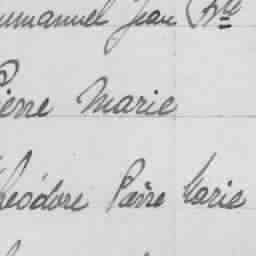 Emmanuel Jean Bte
Pierre Marie
Théodore Pierre Marie